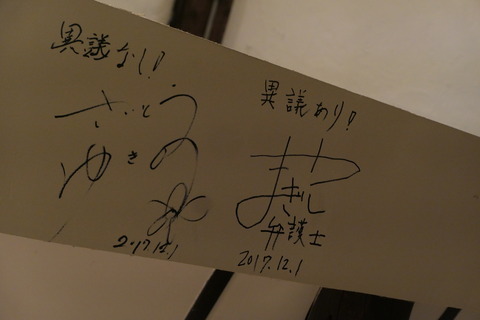 異議なし!
さいとう
ゆきの
2017.12.1
異議あり!
弁護士
2017.12.1